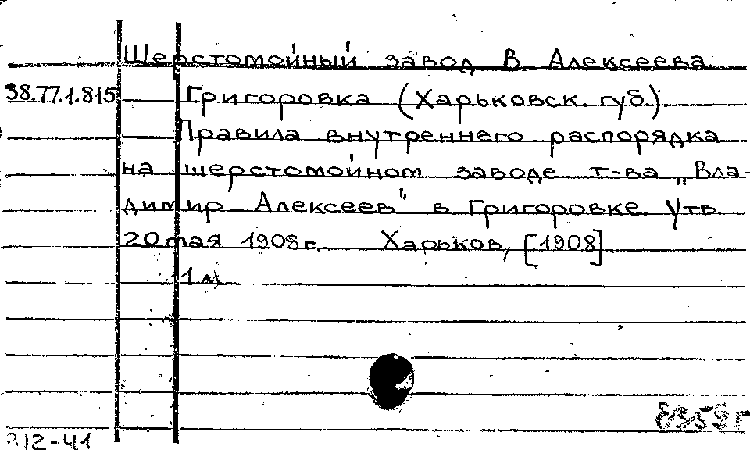 Шерстомойный завод В. Алексеева
38.77.1.815 Григоровка (Харьковск. губ.).
Правила внутреннего распорядка
на шерстомойном заводе т-ва „Вла-
димир Алексеев" в Григоровке. Утв.
20 мая 1908 г. Харьков, [1908]
1 л.
312-41